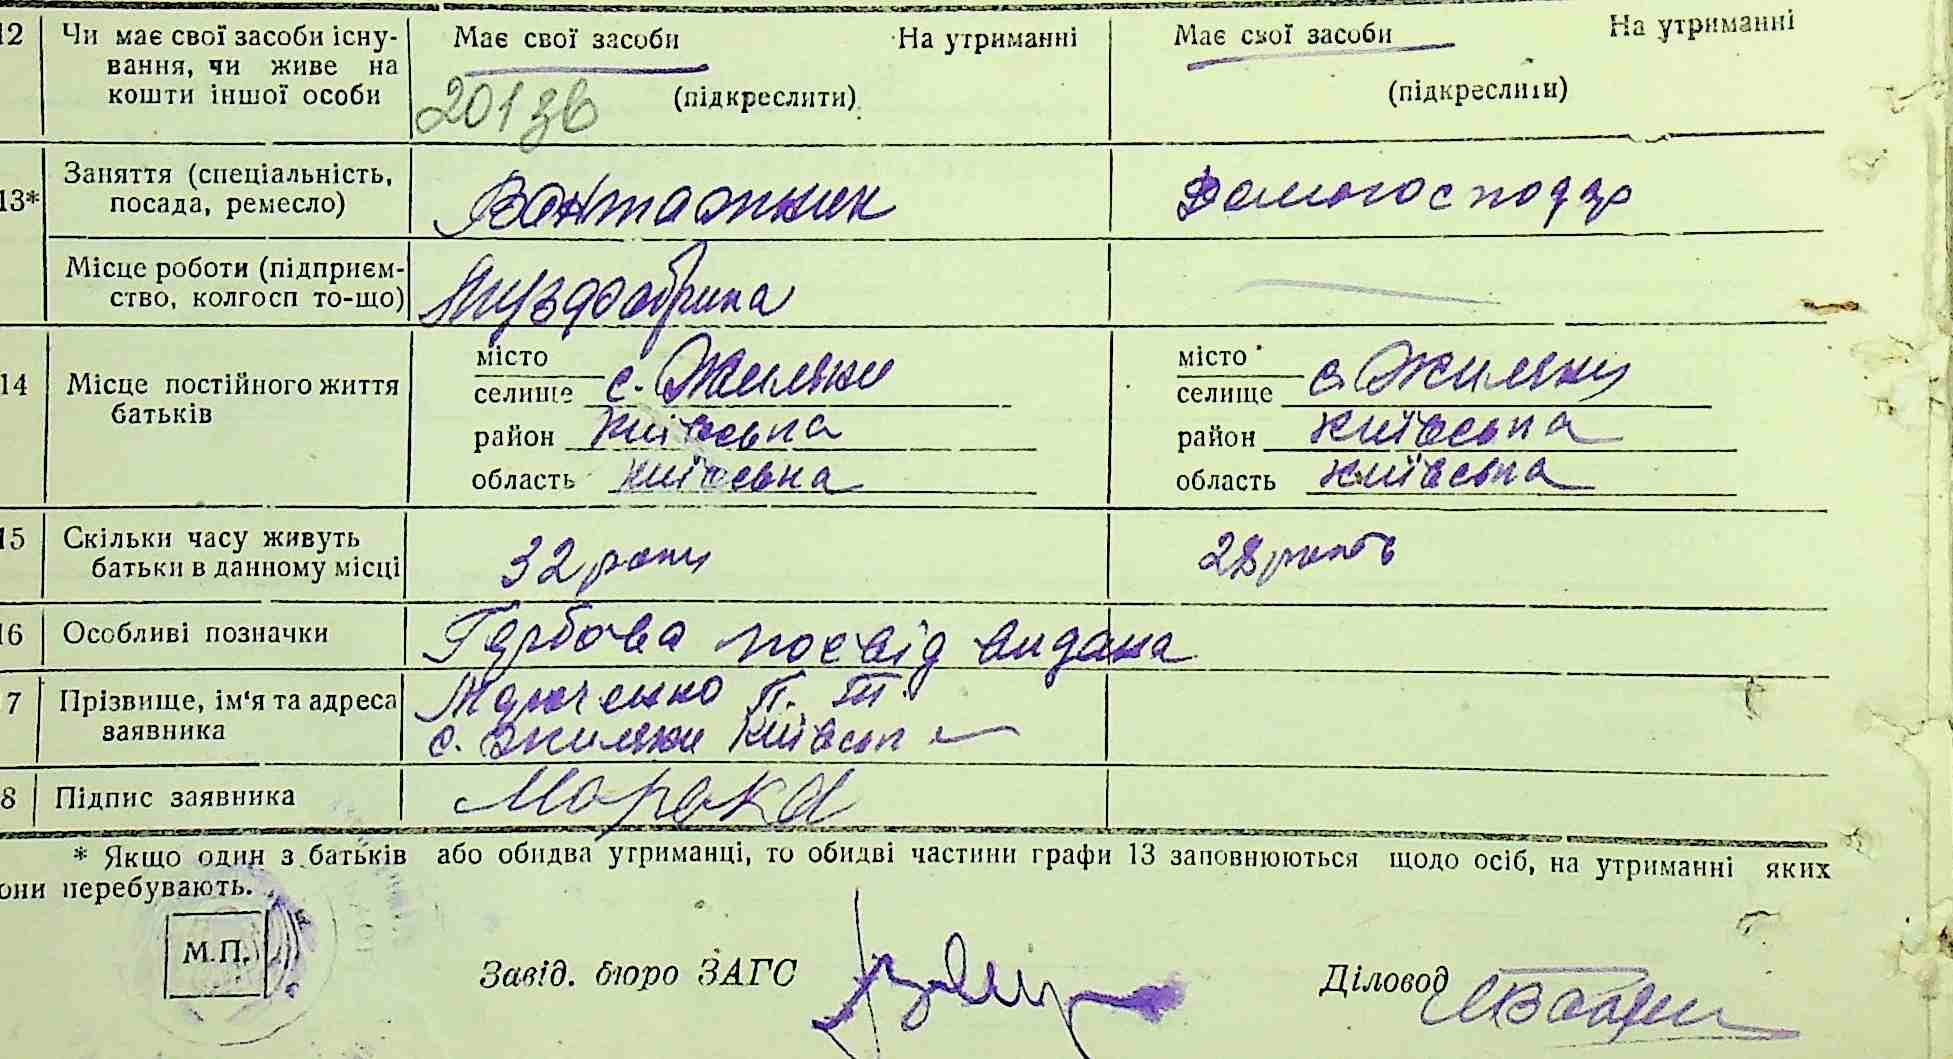 12 Чи має свої засоби існу- Має свої засоби На утриманні Має свої засоби На утриманні
вання, чи живе на
кошти іншої особи 201 зв (підкреслити) (підкреслити)
13* Заняття (спеціальність, Вантажник Домогосподар
посада, ремесло)
Місце роботи (підприєм-
ство, колгосп то-що) Музфабрика
14 Місце постійного життя місто місто
батьків селище с. Жиляни селище с. Жиляни
район Київська район Київська
область Київська область Київська
15 Скільки часу живуть 32 роки 28 років
батьки в данному місці
16 Особливі позначки Гербова посвід видана
7 Прізвище, ім'я та адреса П. Т.
заявника с. Жиляни Київськ
8 Підпис заявника
* Якщо один з батьків або обидва утриманці, то обидві частини графи 13 заповнюються щодо осіб, на утриманні яких
они перебувають.
М.П.
Завід. бюро ЗАГС Діловод